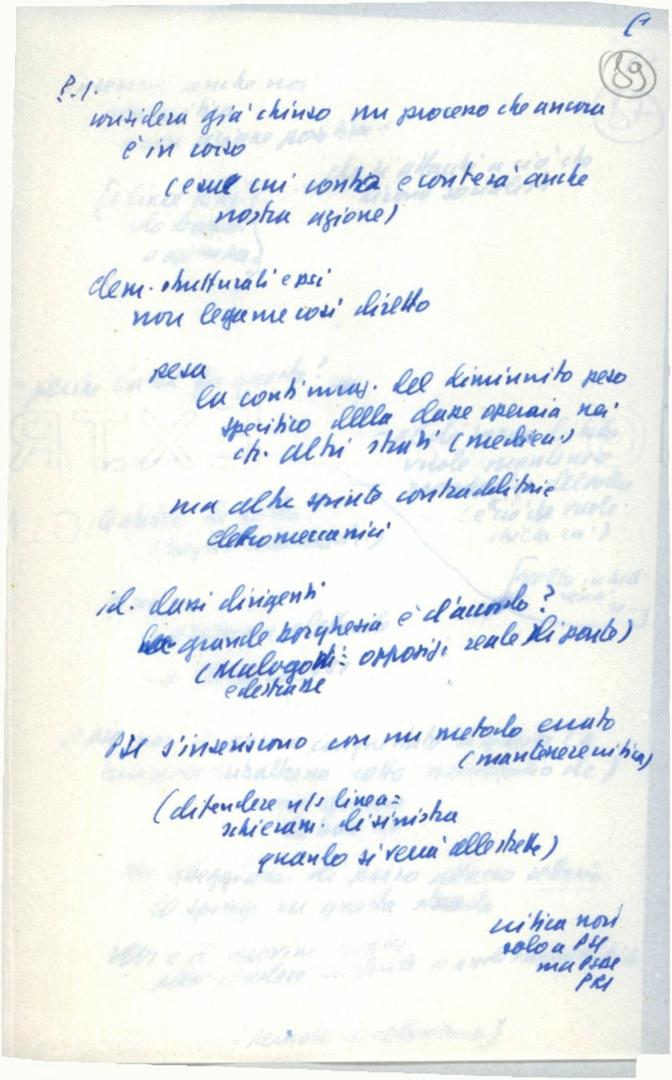 89
P.1.
considera già chiuso un processo che ancora
è in corso
(e sul cui conta e conterà anche
nostra azione)
elem. strutturali e psi
non legame così diretto
pesa
la continuaz. del diminuito peso
specifico della classe operaia nei
cfr. altri strati (media)
ma altre spinte contradditorie
elettromeccanici
id. classi dirigenti
grande borghesia è d'accordo?
(Malagodi: opposiz. reale di parte)
e destra
PSI s'inseriscono con un metodo errato
(mantenere critica)
(difendere ns linea =
schieram. di sinistra
quando si verrà alle strette)
critica non
solo a PSI
ma PSDI
PRI